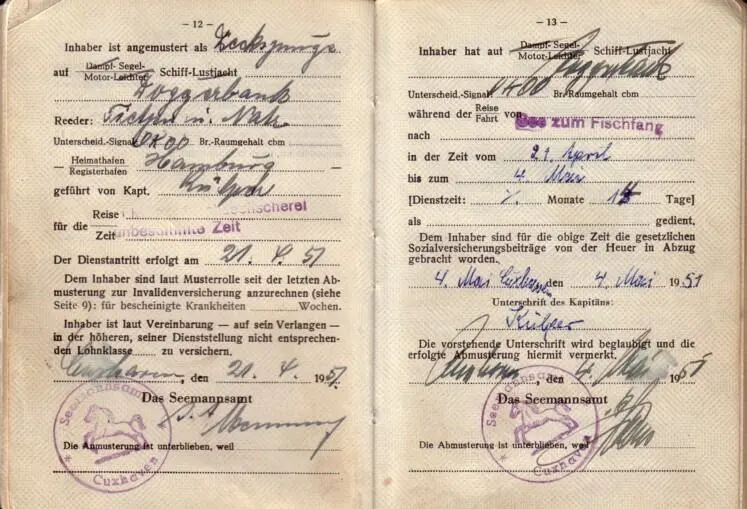 — 12 —
Inhaber ist angemustert als
auf Dampf- Segel- Schiff-Lustjacht
Motor-Leichter
Doggerbank
Reeder:
Unterscheid.-Signal Br.-Raumgehalt cbm
— Heimathafen Hamburg
Registerhafen
geführt von Kapt.
Reise
für die unbestimmte Zeit
Zeit
Der Dienstantritt erfolgt am 21. 4. 51
Dem Inhaber sind laut Musterrolle seit der letzten Ab-
musterung zur Invalidenversicherung anzurechnen (siehe
Seite 9): für bescheinigte Krankheiten Wochen.
Inhaber ist laut Vereinbarung — auf sein Verlangen —
in der höheren, seiner Dienststellung nicht entsprechen-
den Lohnklasse zu versichern.
Cuxhaven, den 21. 4. 1951
Das Seemannsamt
Die Anmusterung ist unterblieben, weil
Seemannsamt
* Cuxhaven *
— 13 —
Inhaber hat auf Dampf- Segel- Schiff-Lustjacht Doggerbank
Motor-Leichter
Unterscheid.-Signal Br.-Raumgehalt cbm
während der Reise von See zum Fischfang
Fahrt
nach
in der Zeit vom 21. April
bis zum 4. Mai
[Dienstzeit: ·/. Monate 14 Tage]
als gedient.
Dem Inhaber sind für die obige Zeit die gesetzlichen
Sozialversicherungsbeiträge von der Heuer in Abzug
gebracht worden.
4. Mai Cuxhaven 4. Mai 1951
Unterschrift des Kapitäns:
Die vorstehende Unterschrift wird beglaubigt und die
erfolgte Abmusterung hiermit vermerkt.
Cuxhaven, den 4. Mai 1951
Das Seemannsamt
Die Abmusterung ist unterblieben, weil
Seemannsamt
* Cuxhaven *